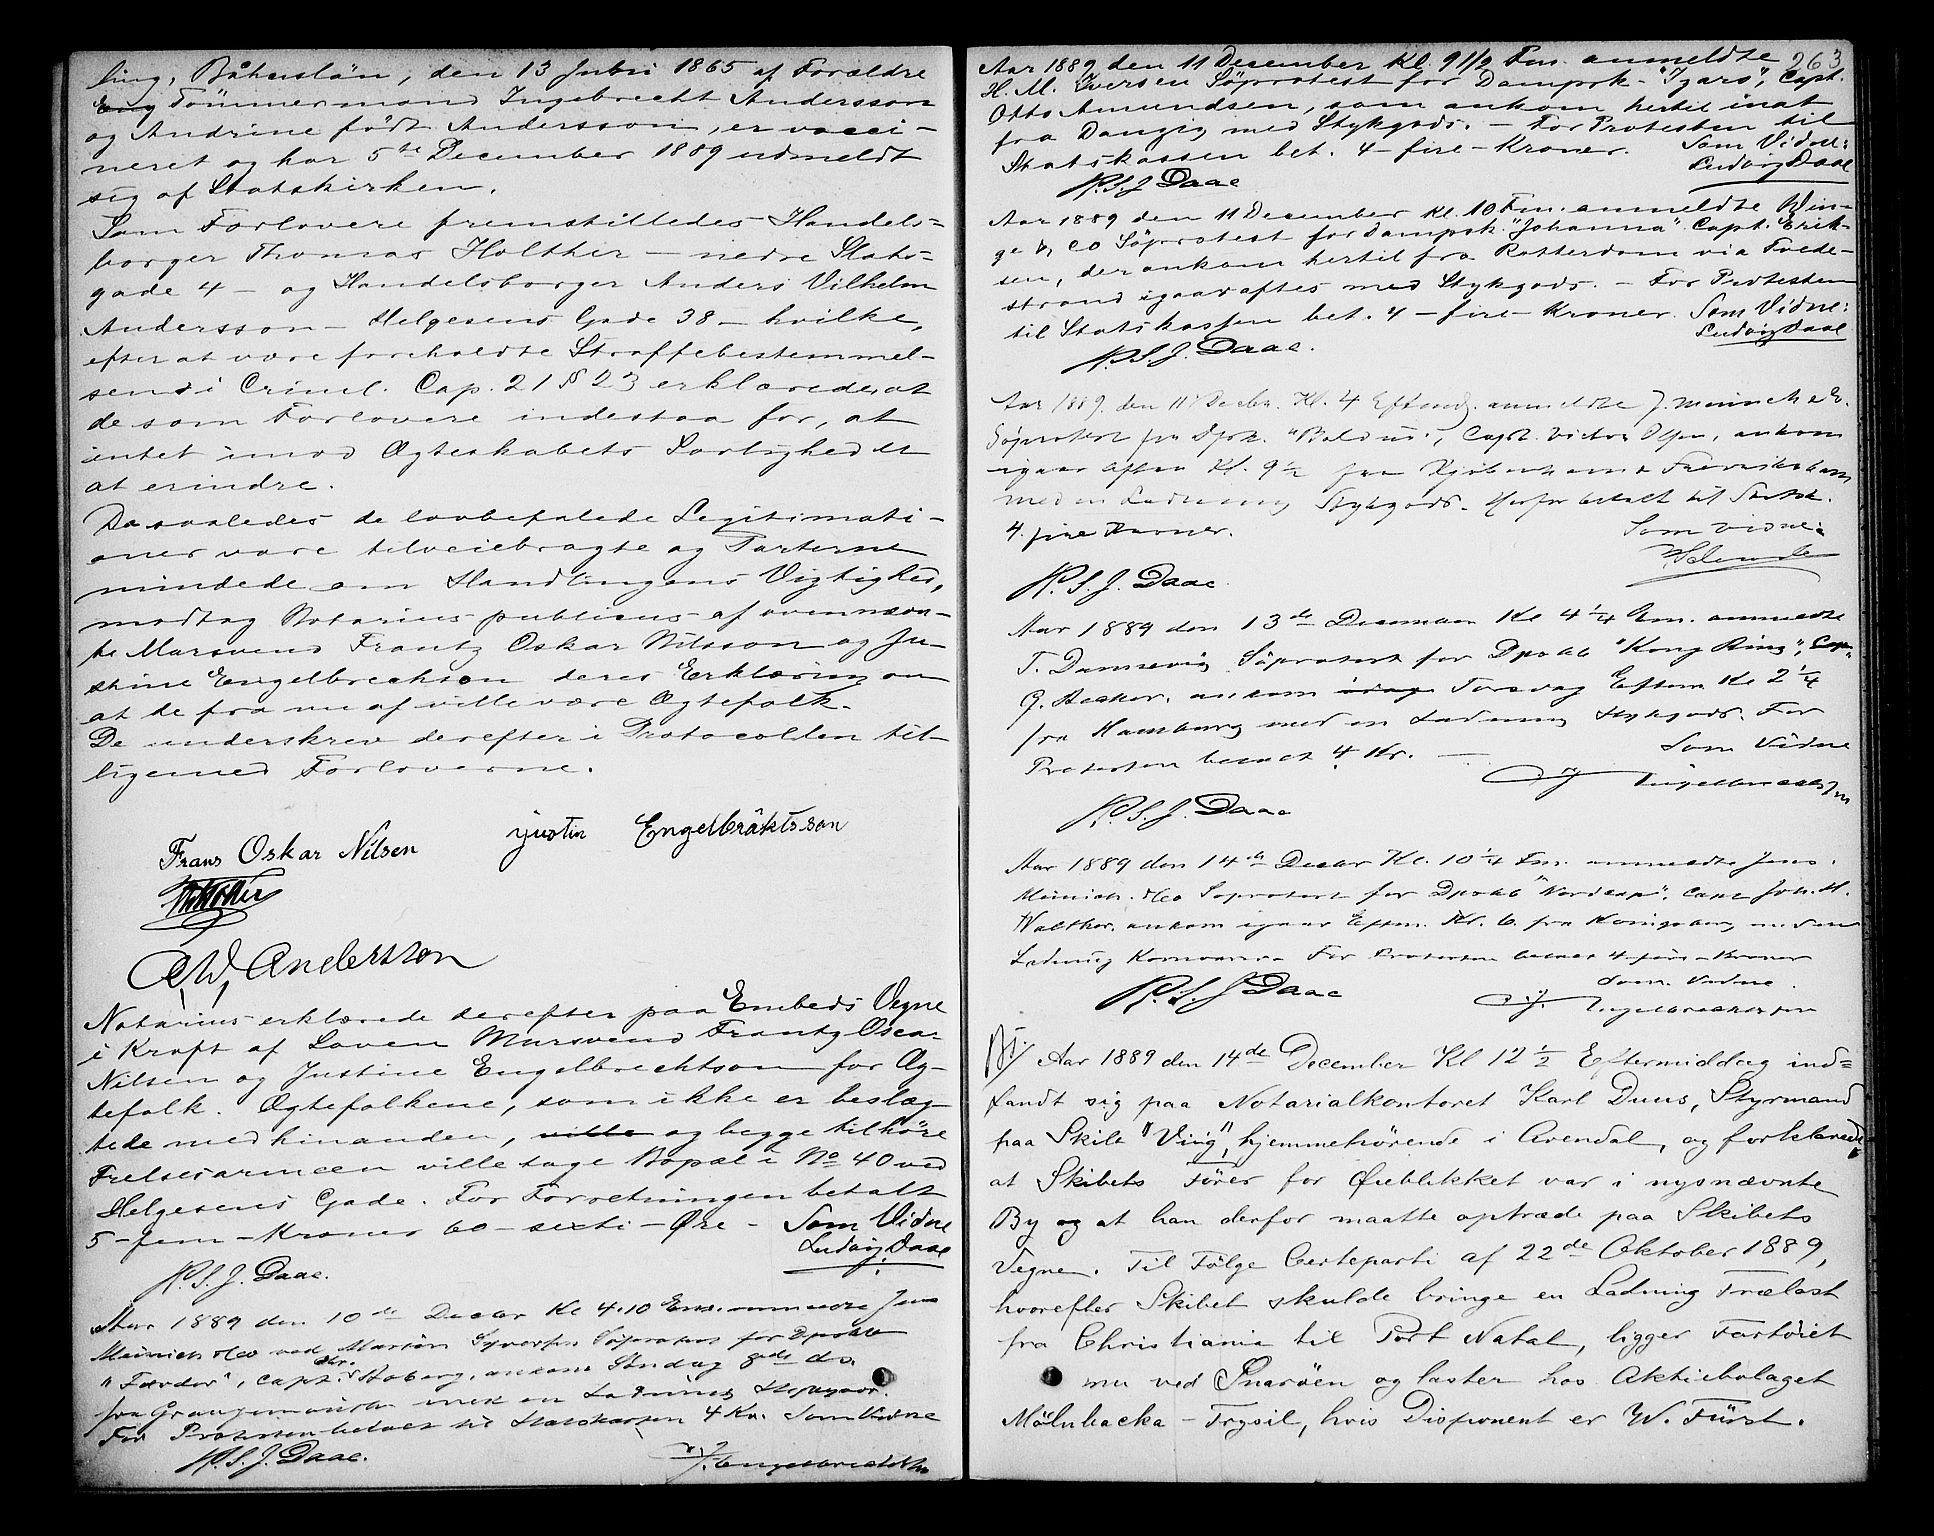 ling, Båhuslän, den 13 Juni 1865 af Forældre
Eng Tömmermand Ingebrecht Andersson
og Andrine född Andersson, er vacci-
neret og har 5te December 1889 udmeldt
sig af Statskirken.
Som Forlovere fremstilledes Handels=
borger Thomas Holther - nedre Slots=
gade 4 - og Handelsborger Anders Vilhelm
Andersson - Helgesens Gade 38 - hvilke,
efter at være foreholdte Straffebestemmel-
sen i Criml. Cap. 21 § 23 erklærede, at
de som Forlovere indestaa for, at
intet imod Ægteskabets Lovlighed er
at erindre.
Da saaledes de lovbefalede Legitimati-
oner vare tilveiebragte og Parterne
mindede om Handlingens Vigtighed,
modtog Notarius publicus af ovennævn-
te Mursvend Frantz Oskar Nilsson og Ju-
stine Engelbrechtson deres Erklæring om
at de fra nu af ville være Ægtefolk.
De underskrev derefter i Protocollen til-
ligemed Forloverne.
Frans Oskar Nilsen justin Engelbräktsson
Th Holther
A. W. Andersson
Notarius erklærede derefter paa Embeds Vegne
i Kraft af Loven Mursvend Frantz Oscar
Nilsen og Justine Engelbrechtson for Æg-
tefolk. Ægtefolkene, som ikke er beslæg-
tede med hinanden, ville og begge tilhöre
Frelserarmeen ville tage Bopæl i No 40 ved
Helgesens Gade. For Forretningen betalt
5 - fem - Kroner 60 - sexti - Øre - Som Vidne
Ludvig Daae
N. S. J. Daae.
Aar 1889 den 10de Decbr Kl 4.10 Em. anmeldte Jens
Meinich & Co ved Martin Syversen Söprotest for Dpskb
"Færder", Capt. Chr. Aaberg, ankom Söndag 8de ds.
fra Grangemouth med en Ladning Stykgods.
For Protesten betalt til Statskassen 4 Kr. Som Vidne
N. S. J. Daae. J. Engelbrechtsen
263
Aar 1889 den 11 December Kl. 9 1/2 Fm. anmeldte
H. M. Iversen Söprotest for Dampsk. "Tjaro", Capt.
Otto Amundsen, som ankom hertil inat
fra Danzig med Stykgods. - For Protesten til
Statskassen bet. 4 - fire - Kroner. Som Vidne:
N. S. J Daae Ludvig Daae
Aar 1889 den 11 December Kl. 10 Fm. anmeldte Win-
ge & Co Söprotest for Dampsk. "Johanna" Capt. Erik-
sen, der ankom hertil fra Rotterdam via Tvede-
strand igaaraftes med Stykgods. - For Protesten
til Statskassen bet. 4 - fire - Kroner. Som Vidne:
N. S. J. Daae. Ludvig Daae
Aar 1889. den 11' Decbr. Kl. 4 Eftmdg. anmeldte J. Meinich & Co.
Söprotest for Dpsk. "Baldur", Capt. Victor Olsen, ankom
igaar Aften Kl. 9 1/2 fra Kjöbenhavn & Fredrikshavn
med en Ladning Stykgods. Herfor betalt til Statsk.
4. fire Kroner. Som Vidne:
N. S. J. Daae.
Aar 1889 den 13de December Kl 4 1/4 Em. anmeldte
T. Dannevig Söprotest for Dpskb "Kong Ring", Capt.
G. Aasker. ankom idag Torsdag Eftm. Kl 2 1/4
fra Hamburg med en Ladning Stykgods. For
Protesten betalt 4 Kr. - Som Vidne
J. Engelbrechtsen
N. S. J. Daae
Aar 1889 den 14de Decbr Kl. 10 1/4 Fm. anmeldte Jens
Meinich & Co Söprotest for Dpskb "Nordcap", Capt Joh. H.
Walther. ankom igaar Eftm. Kl. 6. fra Königsberg med en
Ladning Kornvarer. For Protesten betalt 4 - fire - Kroner
Som Vidne.
N. S. J Daae J. Engelbrechtsen
Aar 1889 den 14de December Kl 12 1/2 Eftermiddag ind=
fandt sig paa Notarialkontoret Karl Duus, Styrmand
paa Skib "Viig", hjemmehörende i Arendal, og forklarede,
at Skibets Förer for Øieblikket var i nysnævnte
By og at han derfor maatte optræde paa Skibets
Vegne. Til Fölge Certeparti af 22de Oktober 1889,
hvorefter Skibet skulde bringe en Ladning Trælast
fra Christiania til Port Natal, ligger Fartöiet
nu ved Snaröen og laster hos Aktiebolaget
Mölnbacka - Trysil, hvis Disponent er W. Fürst.